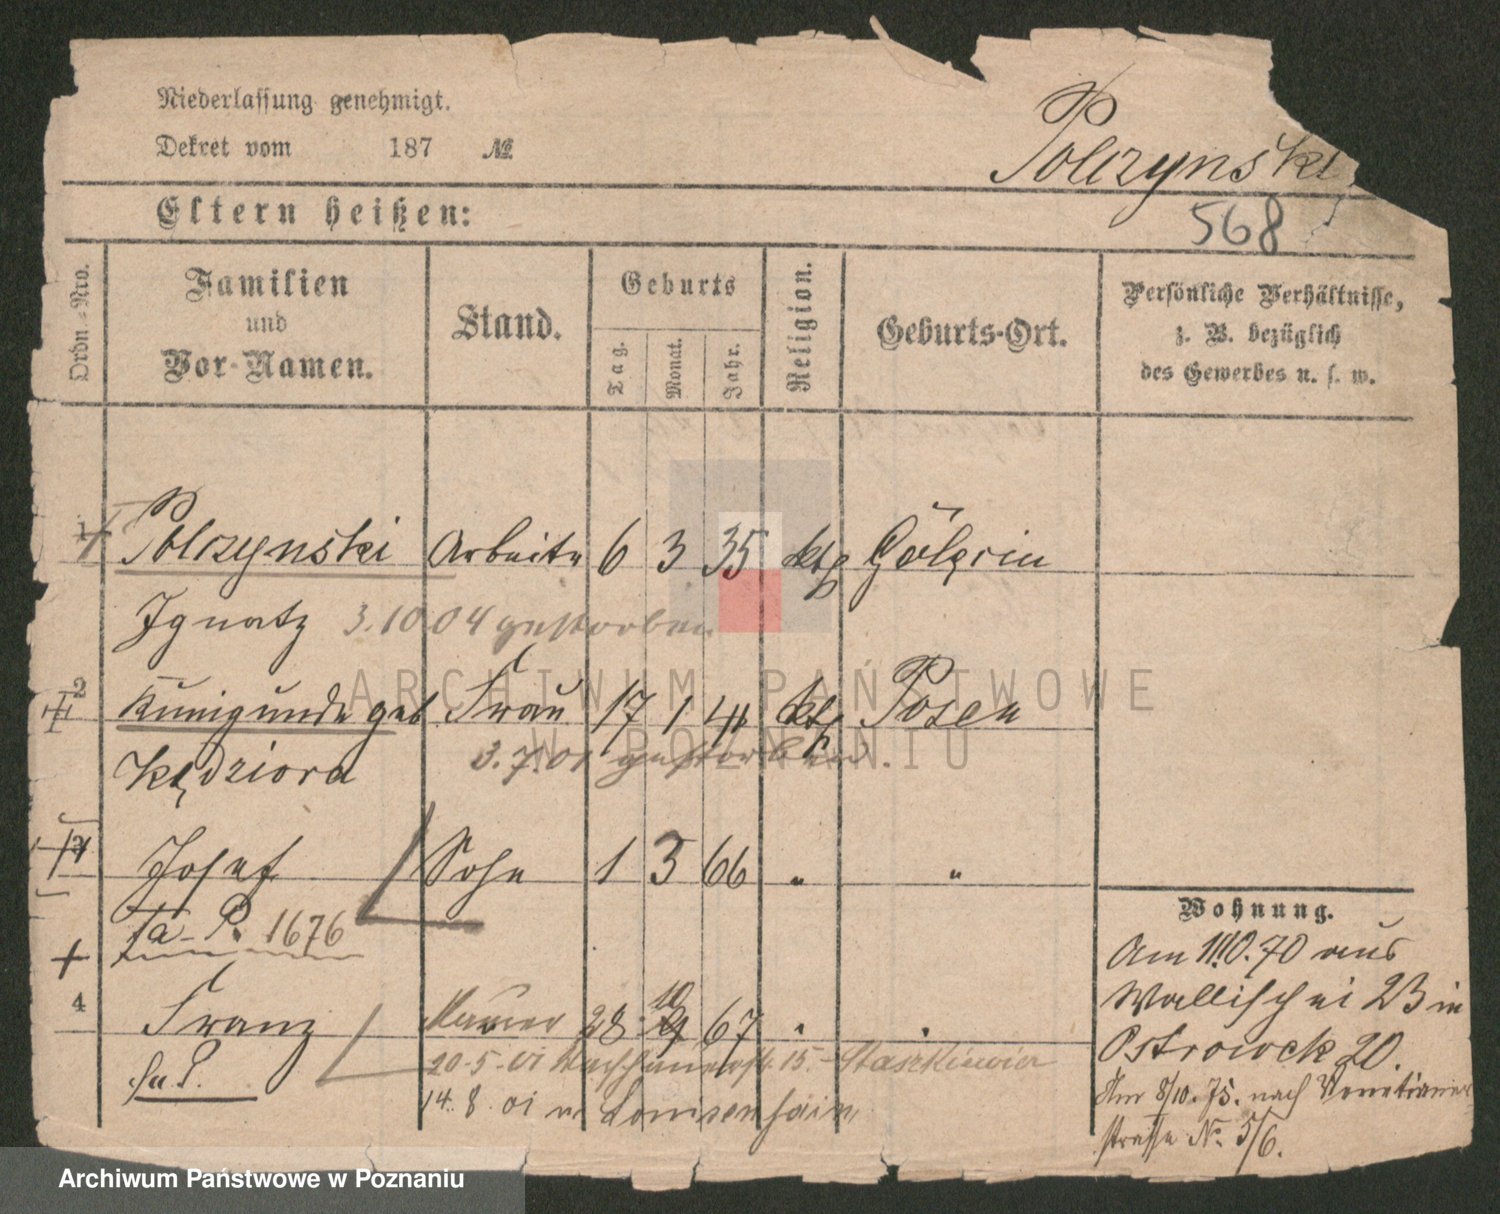 Niederlassung genehmigt.
Dekret vom 187 №
Polczynski
568
Eltern heißen:
Ordn.-Nro.
Familien und Vor-Namen.
Stand.
Geburts
Tag.
Monat.
Jahr.
Religion.
Geburts-Ort.
Persönliche Verhältnisse,
z. B. bezüglich
des Gewerbes u. s. w.
1 Polczynski Arbeiter 6 3 35 kth
Ignatz 3.10.04 gestorben
2 Kunigunde geb. Frau 17 1 41 kth Posen
Kędziora 3.7.01 gestorben.
3 Josef Sohn 1 3 66 " "
Fa-P. 1676
4 Franz Maurer 28 10 67 " "
20.5.01 15.
14.8.01 n. Lonisenhain
Wohnung.
Am 1/10.70 aus
Wallischei 23 in
Ostrowek 20.
Am 8/10.75. nach Venetianer
strasse No. 5/6.
ARCHIWUM PAŃSTWOWE
W POZNANIU
Archiwum Państwowe w Poznaniu